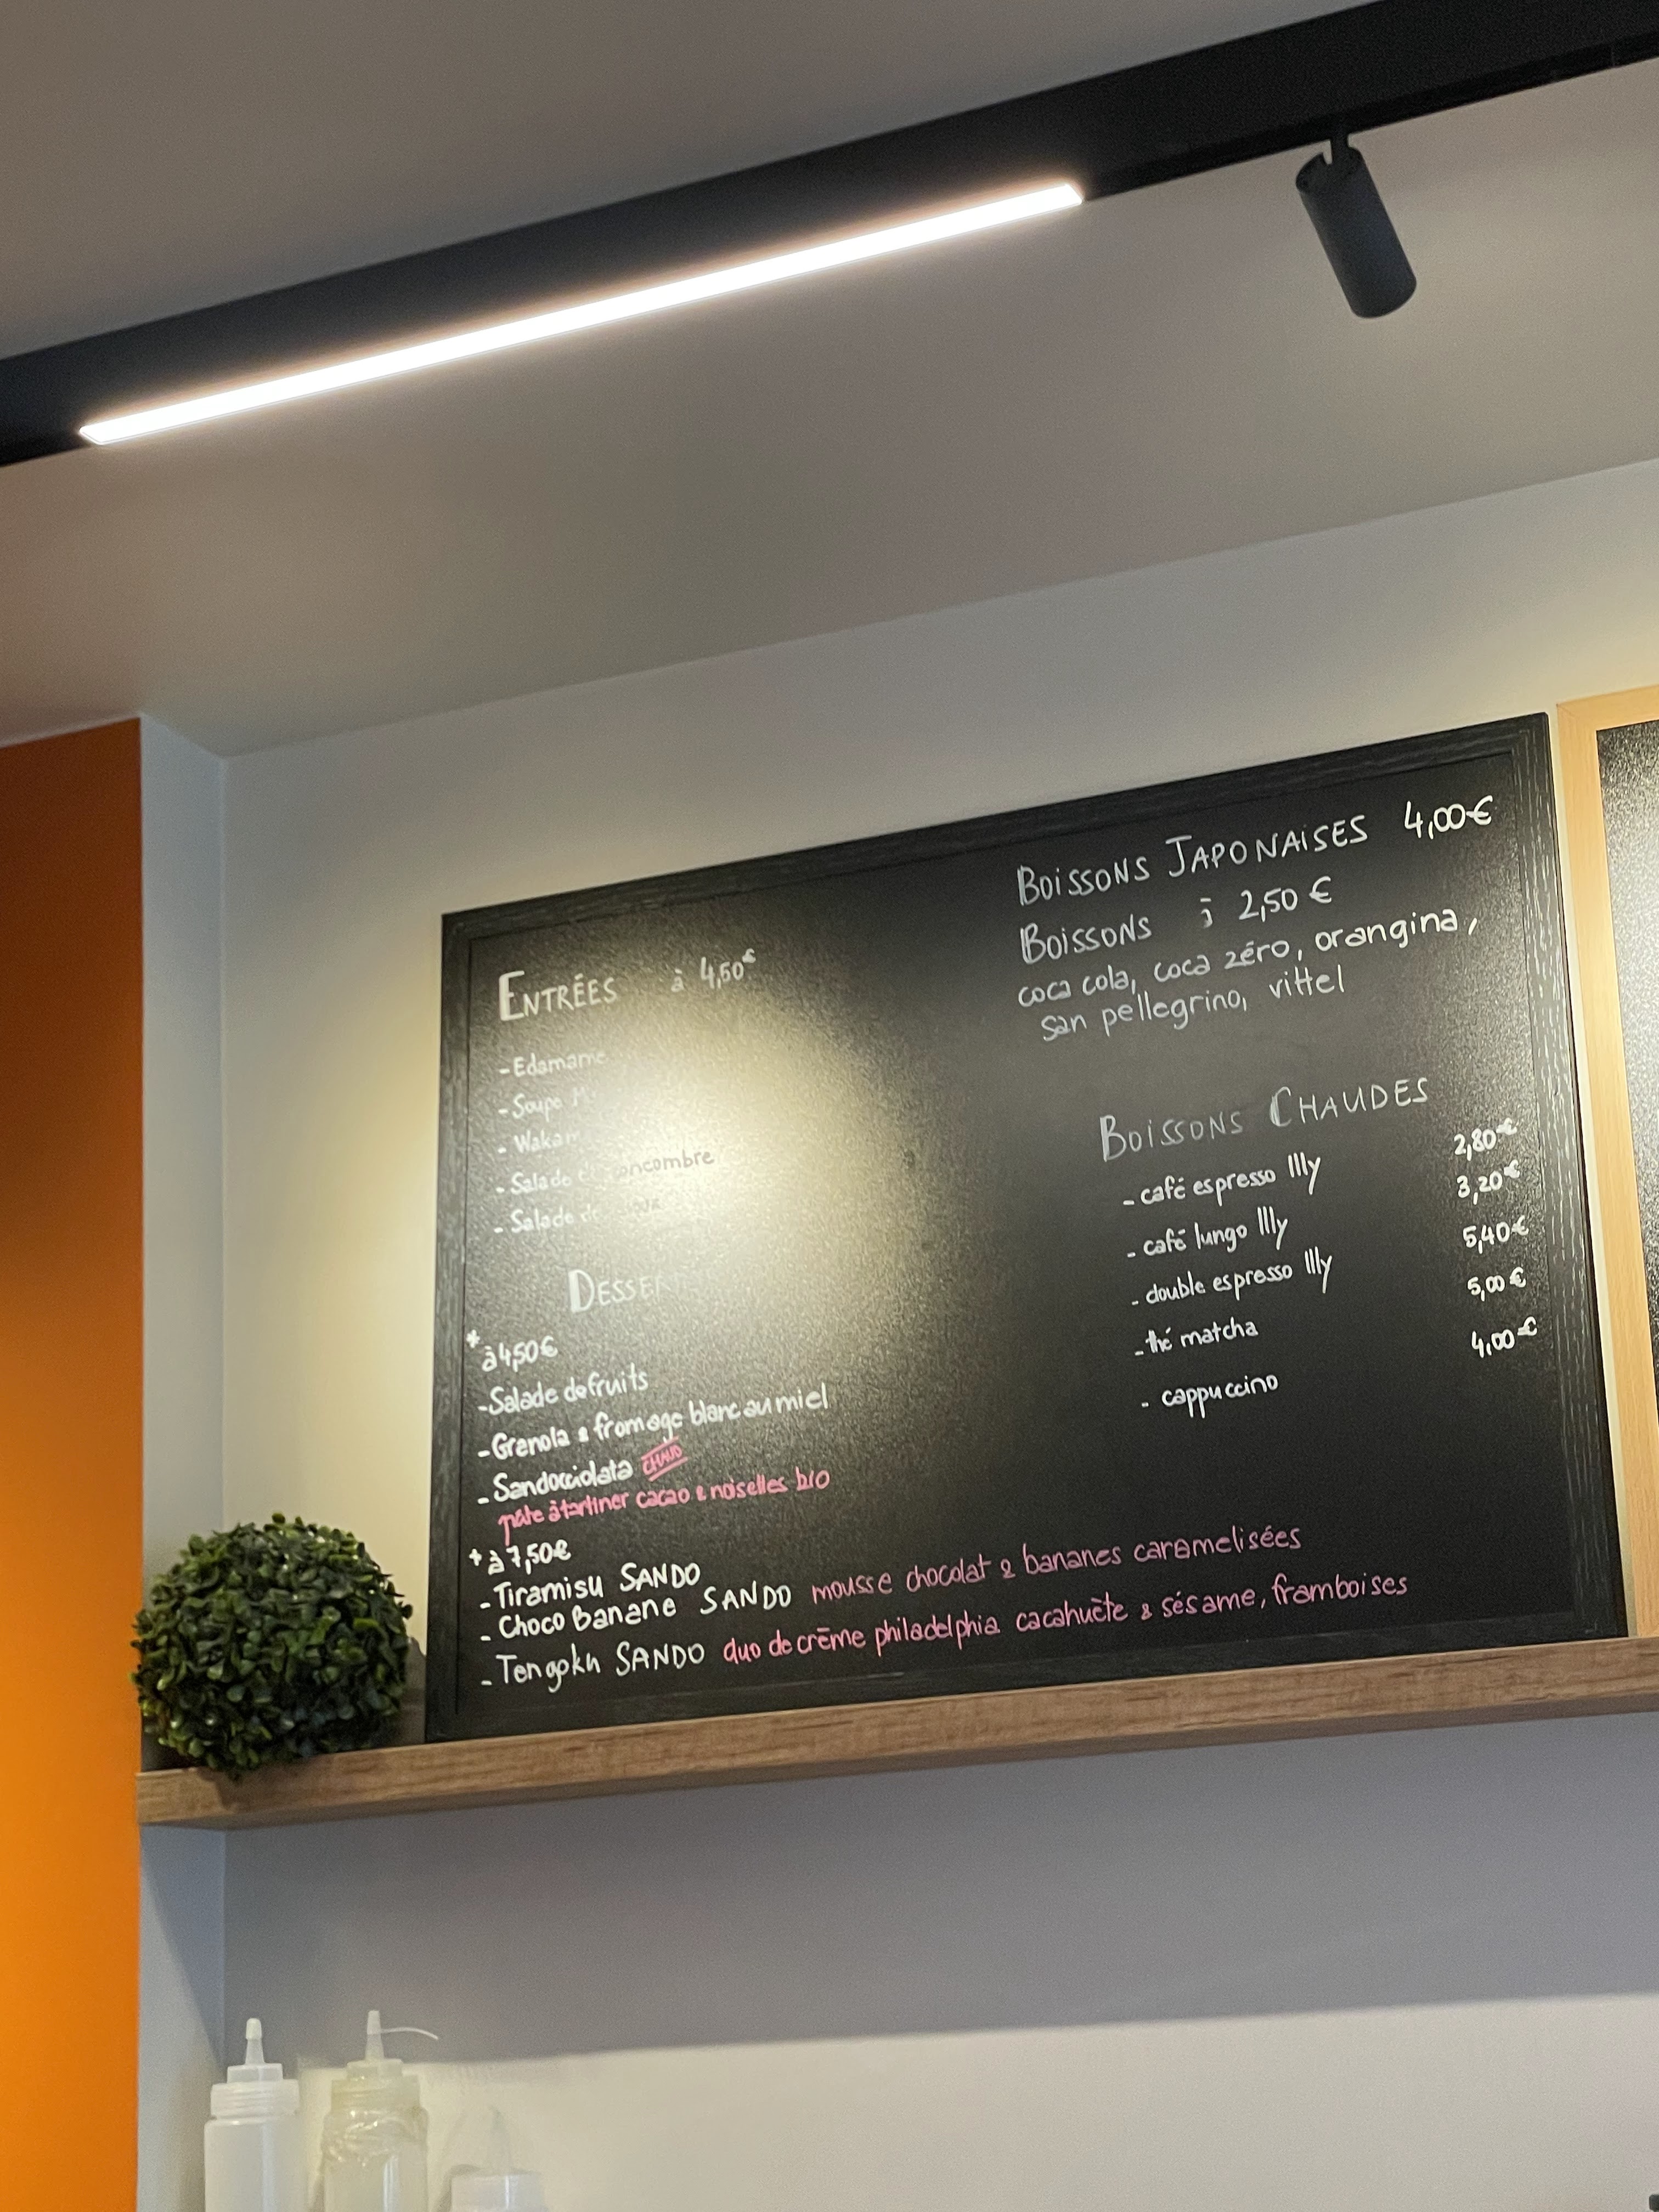 ENTRÉES à 4,50€
- Edamame
- Soupe
- Wakam
- Salade concombre
- Salade de
DESSER
* à 4,50€
- Salade de fruits
- Granola & fromage blanc au miel
- Sandocciolata CHAUD
pâte à tartiner cacao & noisettes bio
* à 7,50€
- Tiramisu SANDO
- Choco Banane SANDO mousse chocolat & bananes caramelisées
- Tengoku SANDO duo de crème philadelphia cacahuète & sésame, framboises
BOISSONS JAPONAISES 4,00€
BOISSONS à 2,50 €
coca cola, coca zéro, orangina,
san pellegrino, vittel
BOISSONS CHAUDES
- café espresso Illy 2,80€
- café lungo Illy 3,20€
- double espresso Illy 5,40€
- thé matcha 5,00€
- cappuccino 4,00€